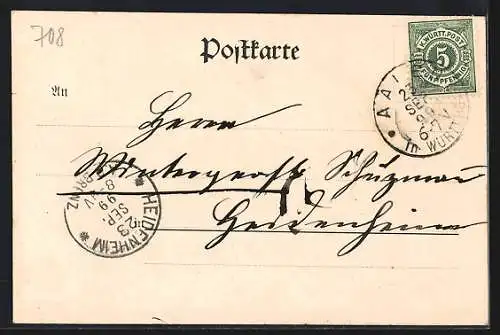 708
Postkarte
K. WÜRTT. POST
5
FÜNF PFENNIG
An
AAL
23
SEP
99
6-7 V
In WÜRTT
Herrn
Schuzmann
Heidenheim
* HEIDENHEIM *
23
SEP.
99
8-9 V
BRENZ